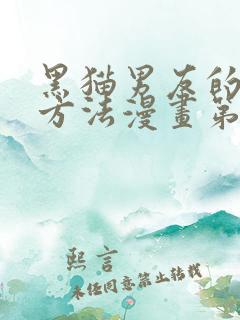 黑猫男友的
方法漫畫第
熙言
未经同意禁止转载